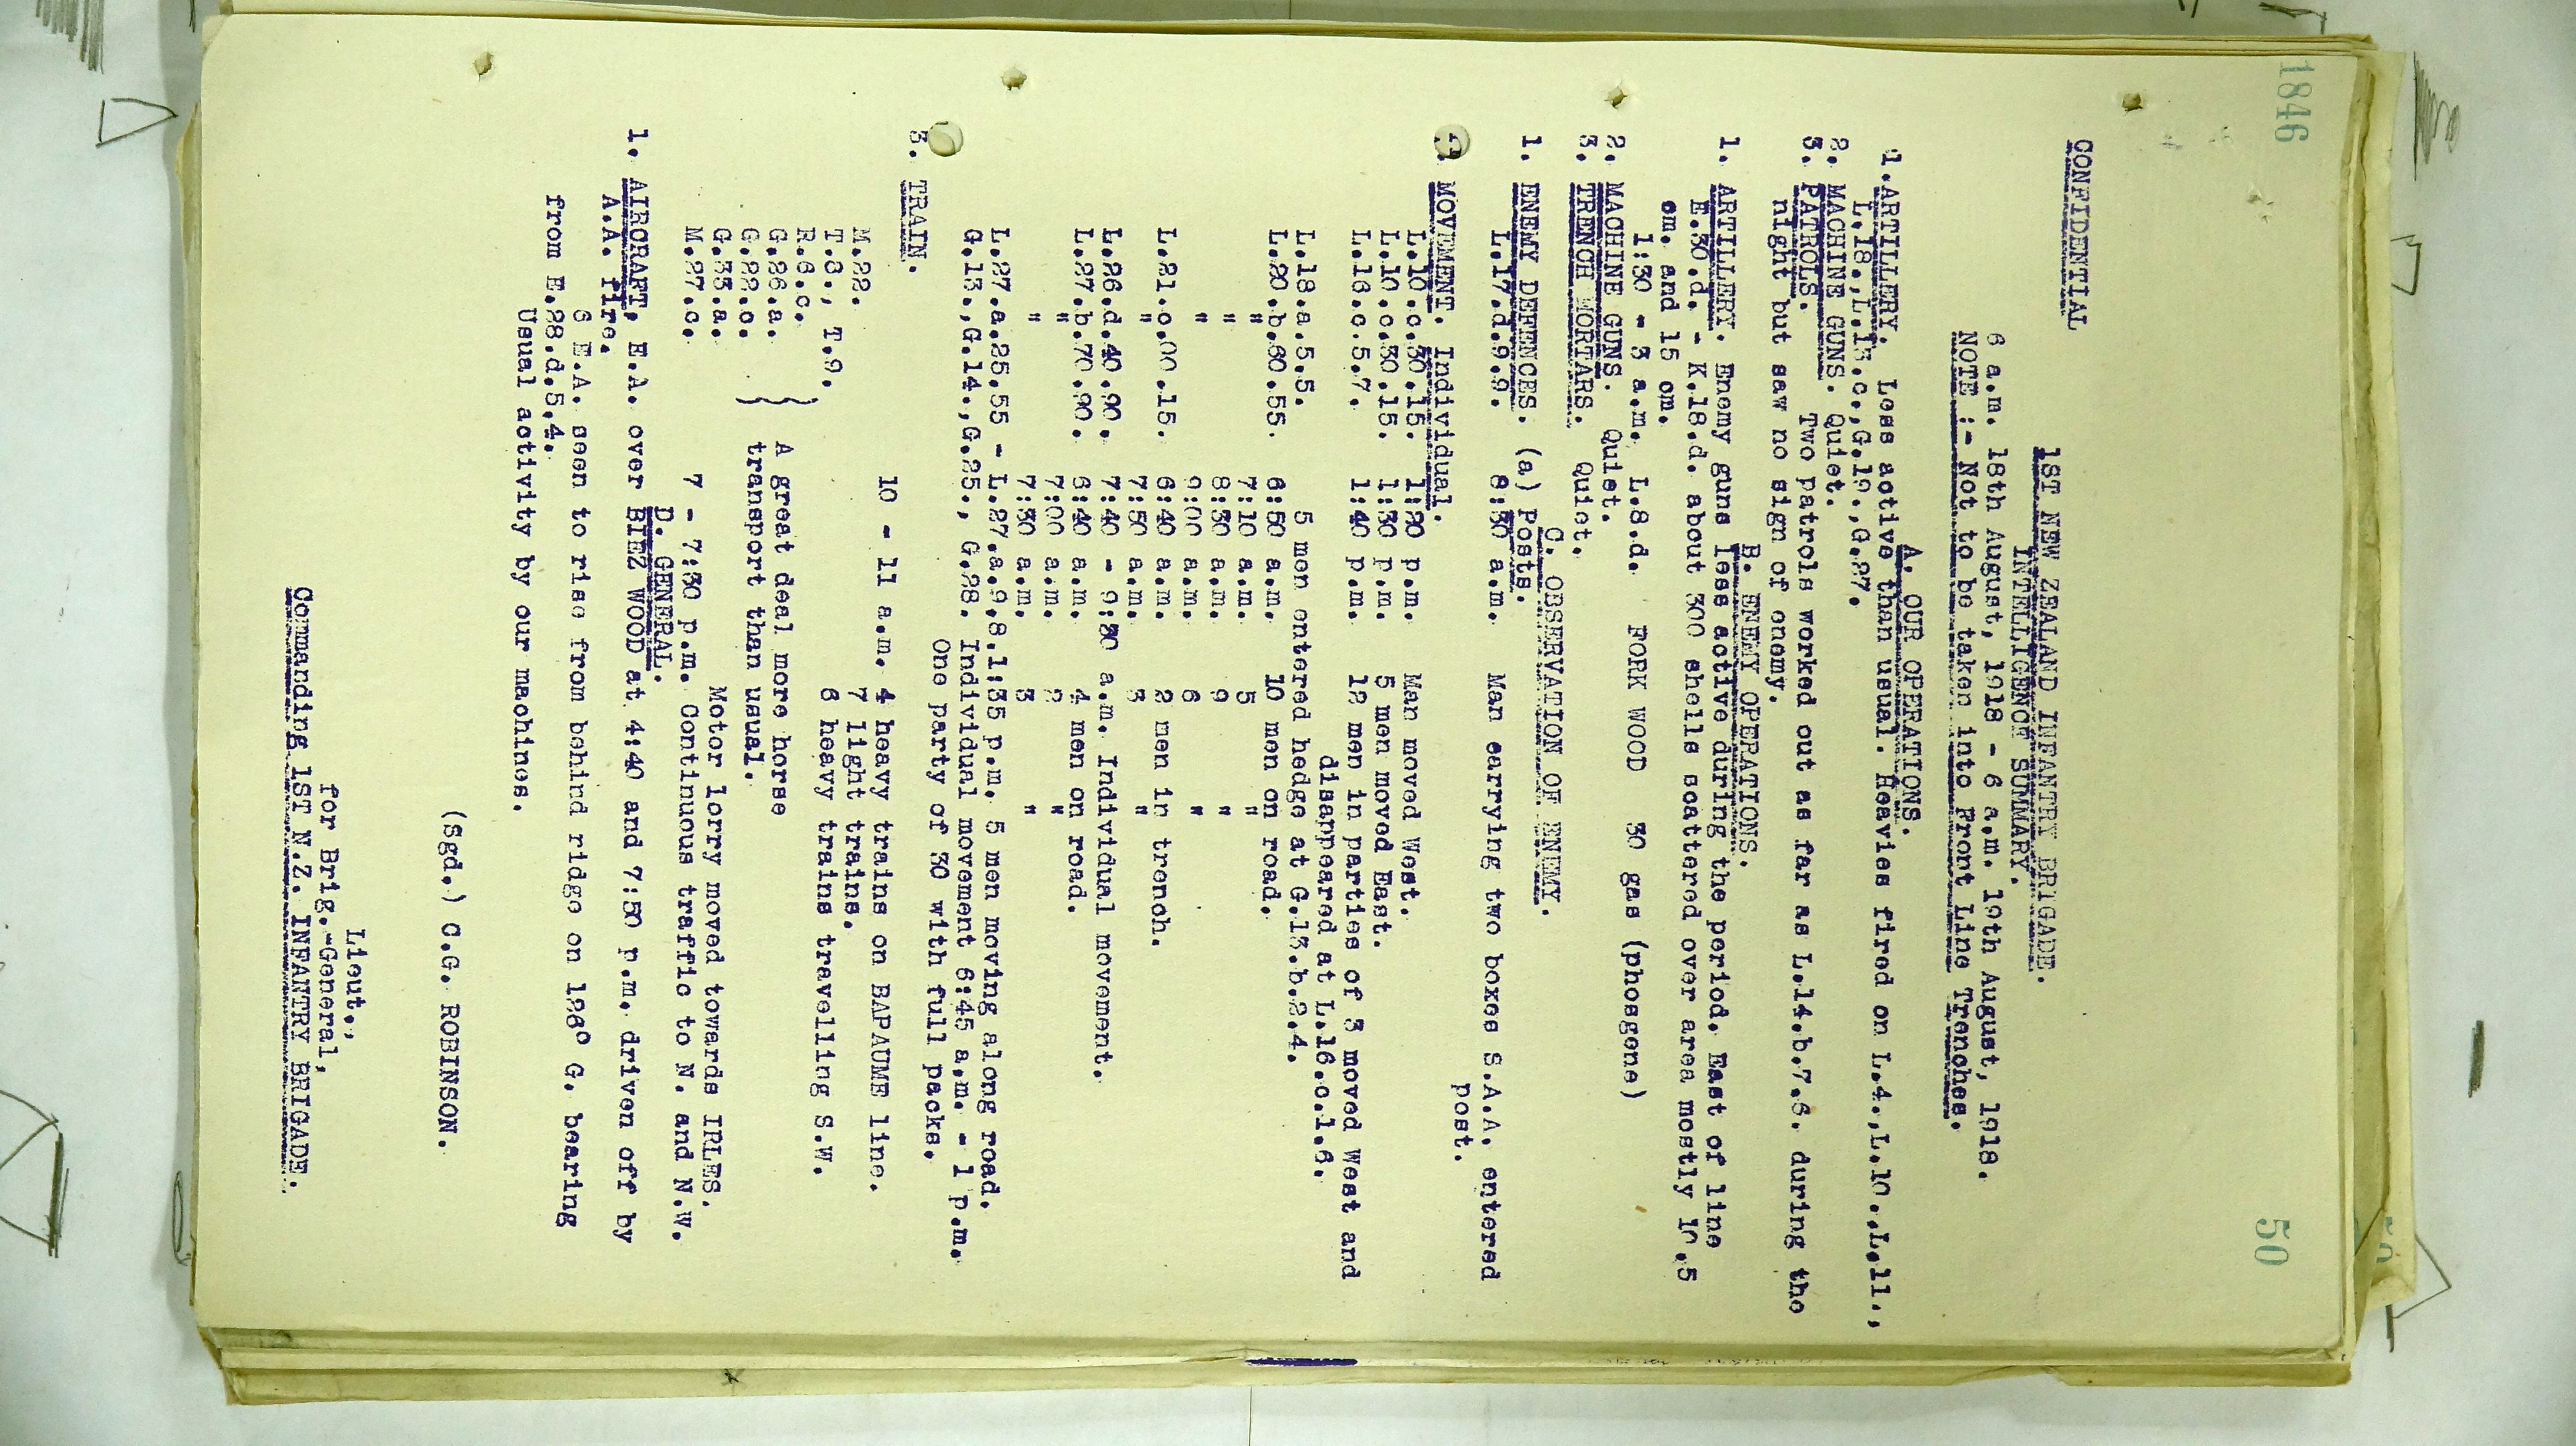 1846
50
CONFIDENTIAL
1ST NEW ZEALAND INFANTRY BRIGADE.
INTELLIGENCE SUMMARY.
6 a.m. 18th August, 1918 - 6 a.m. 19th August, 1918.
NOTE :- Not to be taken into Front Line Trenches.
A. OUR OPERATIONS.
1. ARTILLERY. Less active than usual. Heavies fired on L.4.,L.10.,L.11.,
L.18.,L.15.c.,G.19.,G.27.
2. MACHINE GUNS. Quiet.
3. PATROLS. Two patrols worked out as far as L.14.b.7.6. during the
night but saw no sign of enemy.
B. ENEMY OPERATIONS.
1. ARTILLERY. Enemy guns less active during the period. East of line
E.30.d. - K.18.d. about 300 shells scattered over area mostly 10.5
cm. and 15 cm.
1:30 - 3 a.m. L.8.d. FORK WOOD 30 gas (phosgene)
2. MACHINE GUNS. Quiet.
3. TRENCH MORTARS. Quiet.
C. OBSERVATION OF ENEMY.
1. ENEMY DEFENCES. (a) Posts.
L.17.d.9.9. 8:30 a.m. Man carrying two boxes S.A.A. entered
post.
2. MOVEMENT. Individual.
L.10.c.30.15. 1:20 p.m. Man moved West.
L.10.c.30.15. 1:30 p.m. 5 men moved East.
L.16.c.5.7. 1:40 p.m. 12 men in parties of 3 moved West and
disappeared at L.16.c.1.6.
L.18.a.5.5. 5 men entered hedge at G.13.b.2.4.
L.20.b.60.55. 6:50 a.m. 10 men on road.
" 7:10 a.m. 5 "
" 8:30 a.m. 9 "
" 9:00 a.m. 6 "
L.21.c.00.15. 6:40 a.m. 2 men in trench.
" 7:50 a.m. 3 "
L.26.d.40.90. 7:40 - 9:30 a.m. Individual movement.
L.27.b.70.90. 6:40 a.m. 4 men on road.
" 7:00 a.m. 2 "
" 7:30 a.m. 3 "
L.27.a.25.55 - L.27.a.9.8.1:35 p.m. 5 men moving along road.
G.13.,G.14.,G.25., G.28. Individual movement 6:45 a.m. - 1 p.m.
One party of 30 with full packs.
3. TRAIN.
M.22. 10 - 11 a.m. 4 heavy trains on BAPAUME line.
7 light trains.
T.3., T.9. 6 heavy trains travelling S.W.
R.6.c. }
G.26.a. A great deal more horse
G.22.c. } transport than usual.
G.33.a. Motor lorry moved towards IRLES.
M.27.c. 7 - 7:30 p.m. Continuous traffic to N. and N.W.
D. GENERAL.
1. AIRCRAFT. E.A. over BIEZ WOOD at 4:40 and 7:50 p.m. driven off by
A.A. fire.
6 E.A. seen to rise from behind ridge on 126° G. bearing
from E.28.d.5.4.
Usual activity by our machines.
(Sgd.) C.G. ROBINSON.
Lieut.,
for Brig.-General,
Commanding 1ST N.Z. INFANTRY BRIGADE.